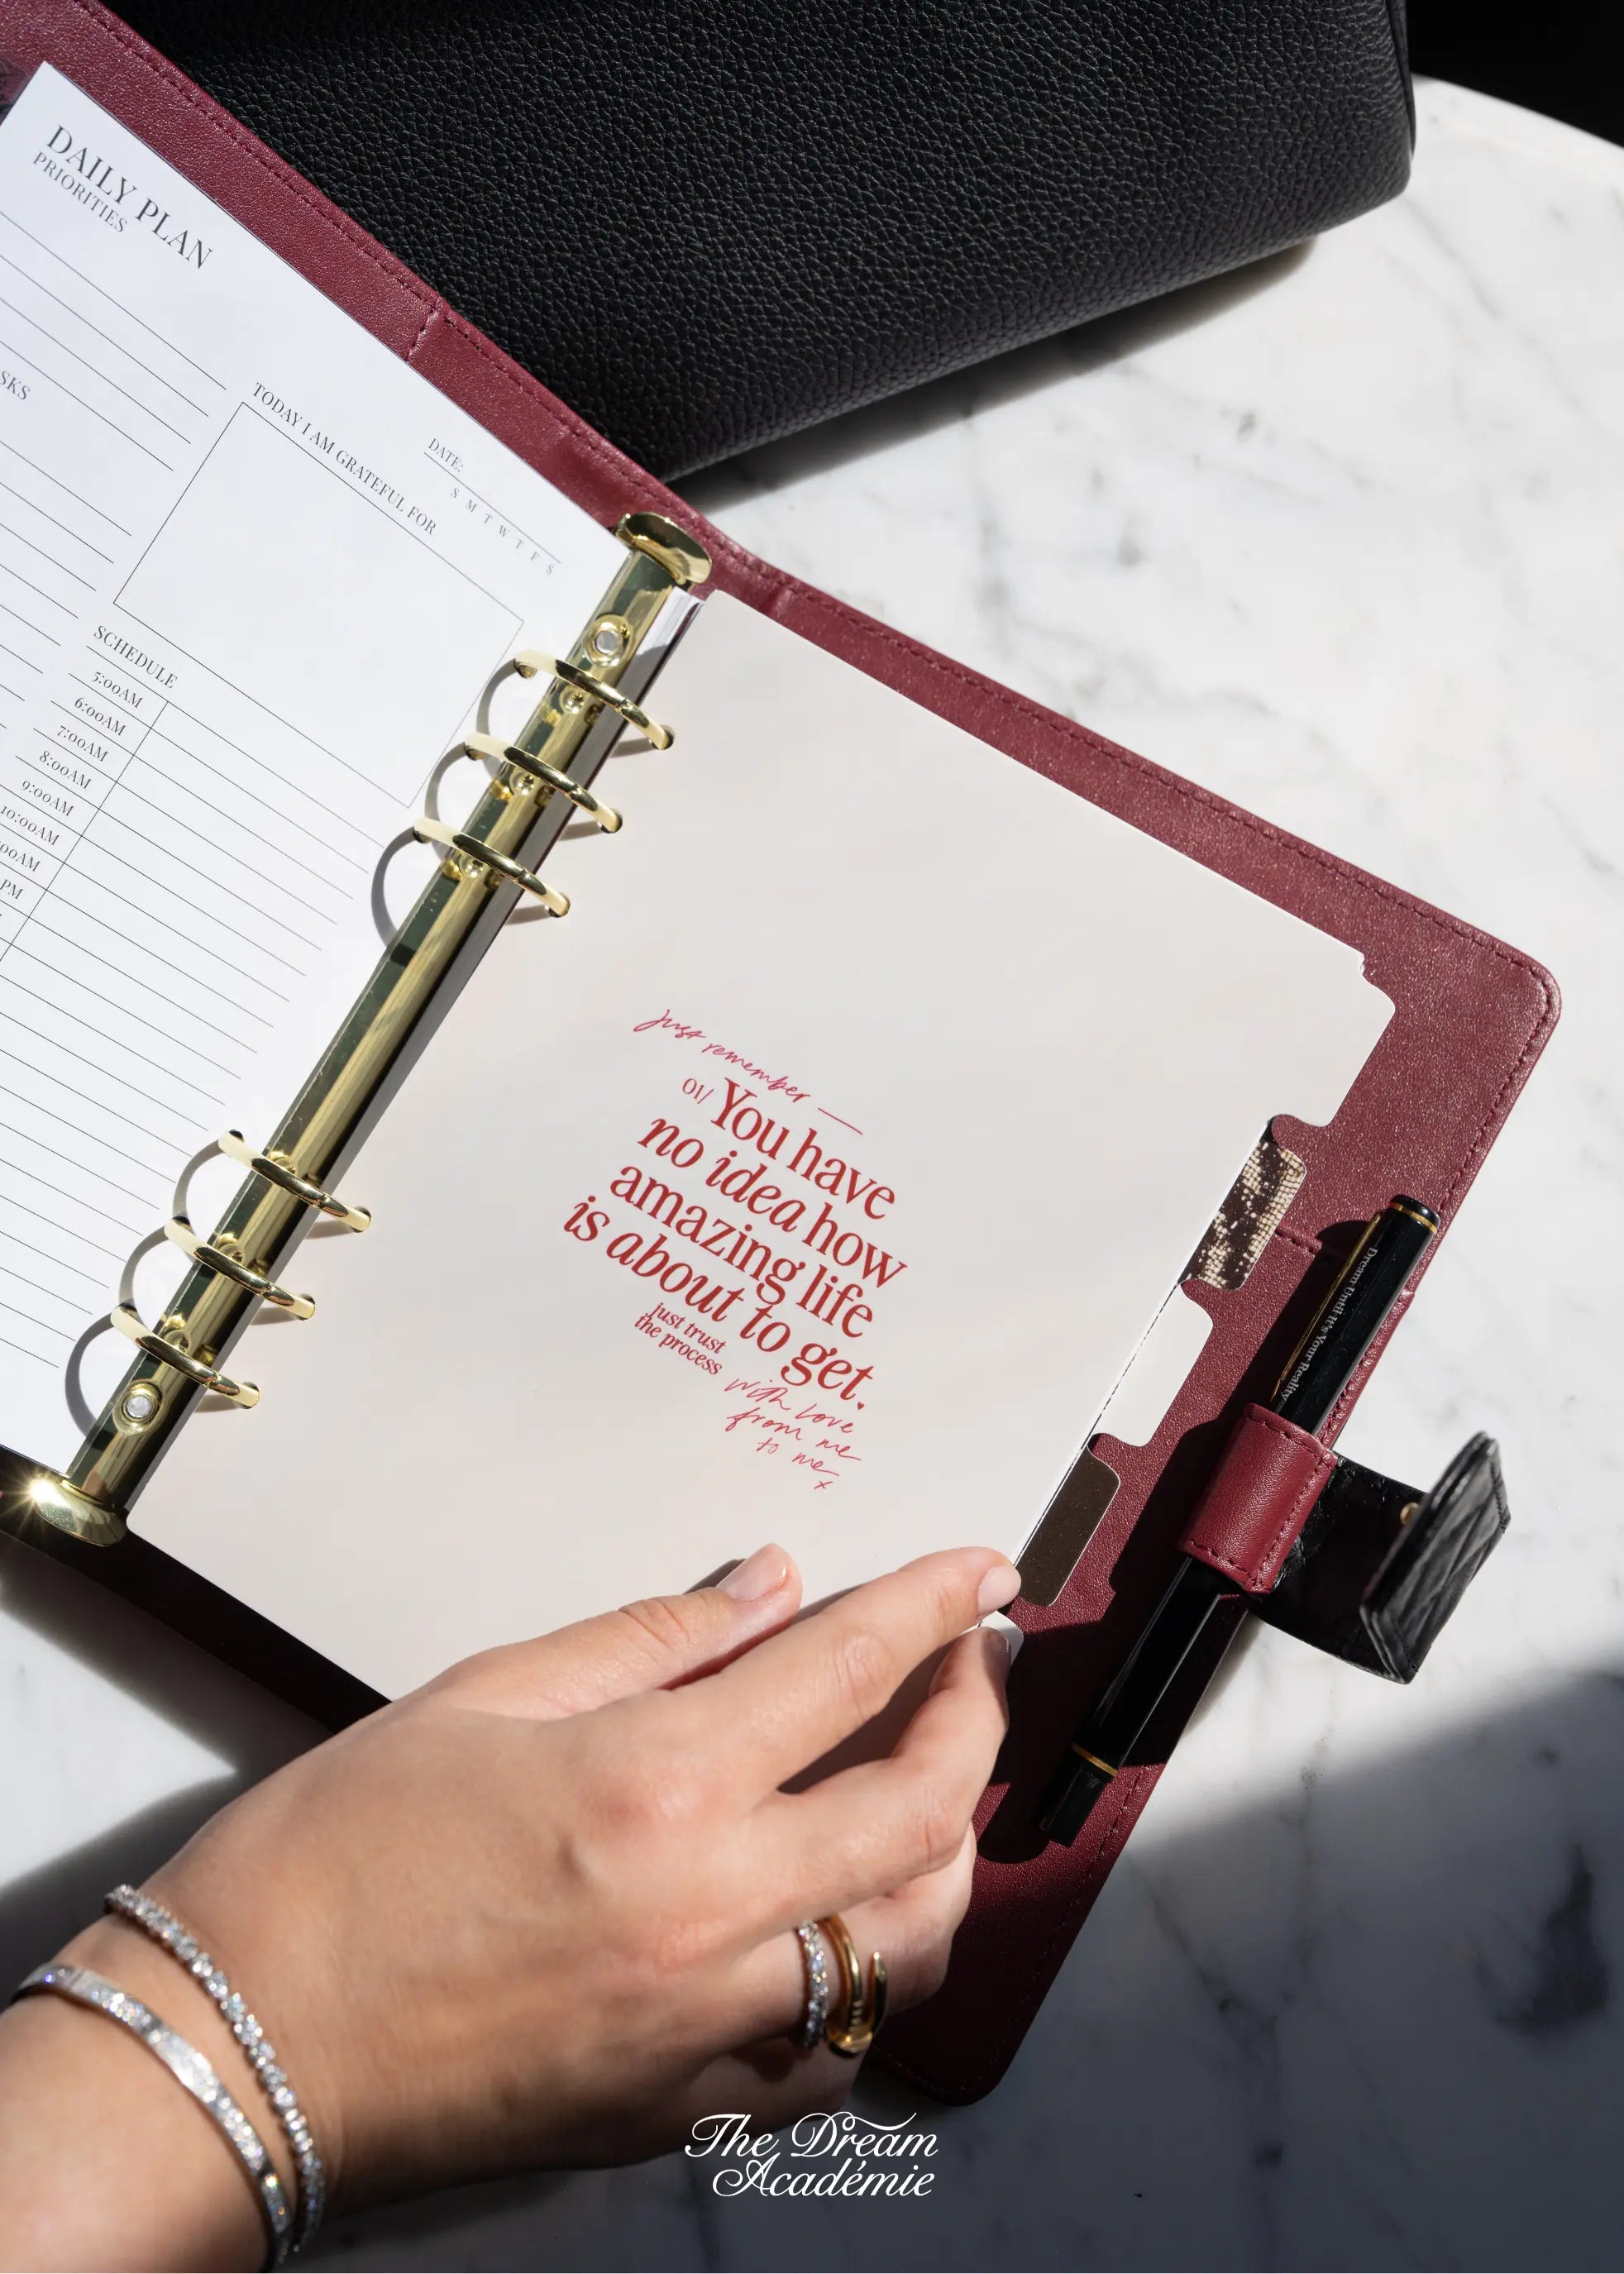 DAILY PLAN
PRIORITIES
DATE:
S M T W T F S
TODAY I AM GRATEFUL FOR
SCHEDULE
5:00AM
6:00AM
7:00AM
8:00AM
9:00AM
10:00AM
just remember —
01/ You have
no idea how
amazing life
is about to get.
just trust
the process
with love
from me
to me
x
Dream Until It's Your Reality
The Dream
Académie